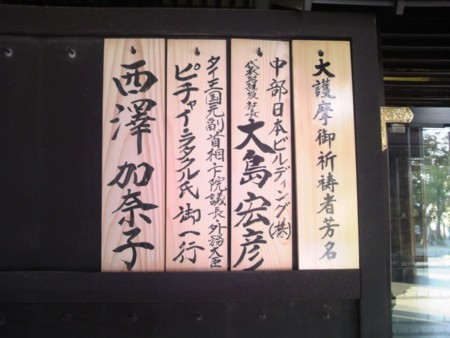 大護摩御祈祷者芳名
中部日本ビルディング(株)
代表取締役社長
大島宏彦
タイ王国元副首相・下院議長・外務大臣
ピチャイ・ラタクル氏 御一行
西澤加奈子